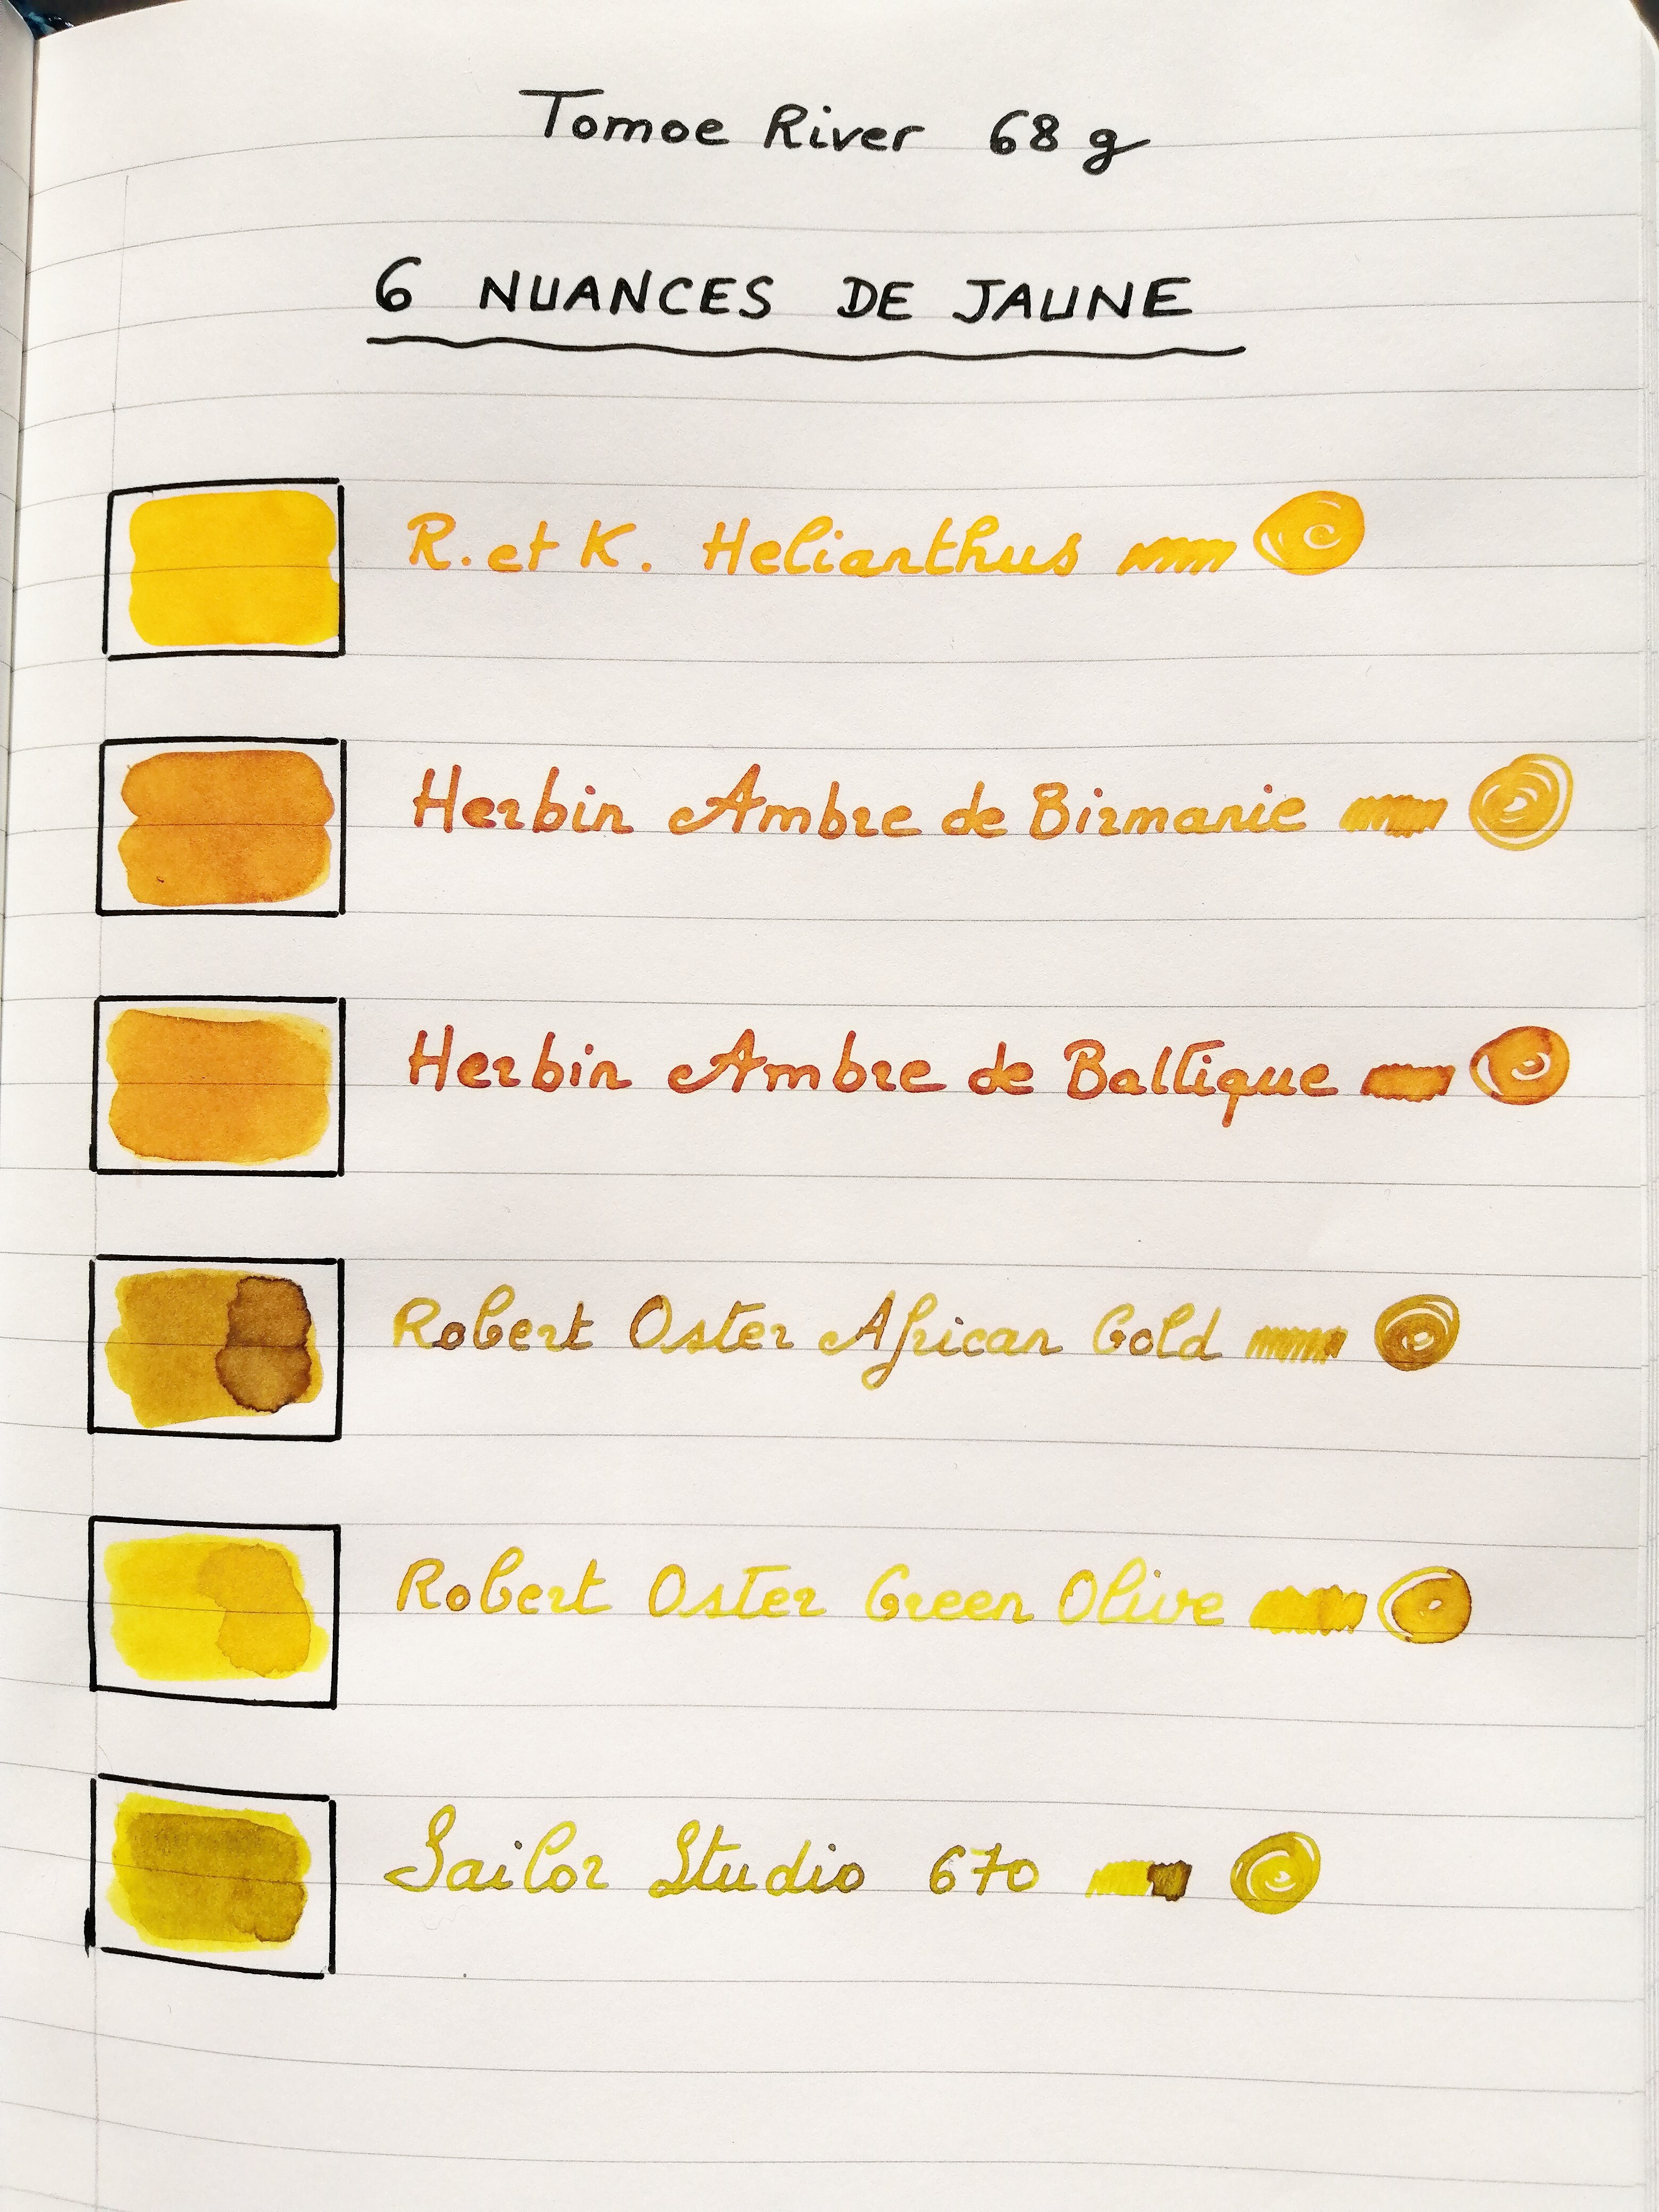 Tomoe River 68 g
6 NUANCES DE JAUNE
R. et K. Helianthus
Herbin Ambre de Birmanie
Herbin Ambre de Baltique
Robert Oster African Gold
Robert Oster Green Olive
Sailor Studio 670